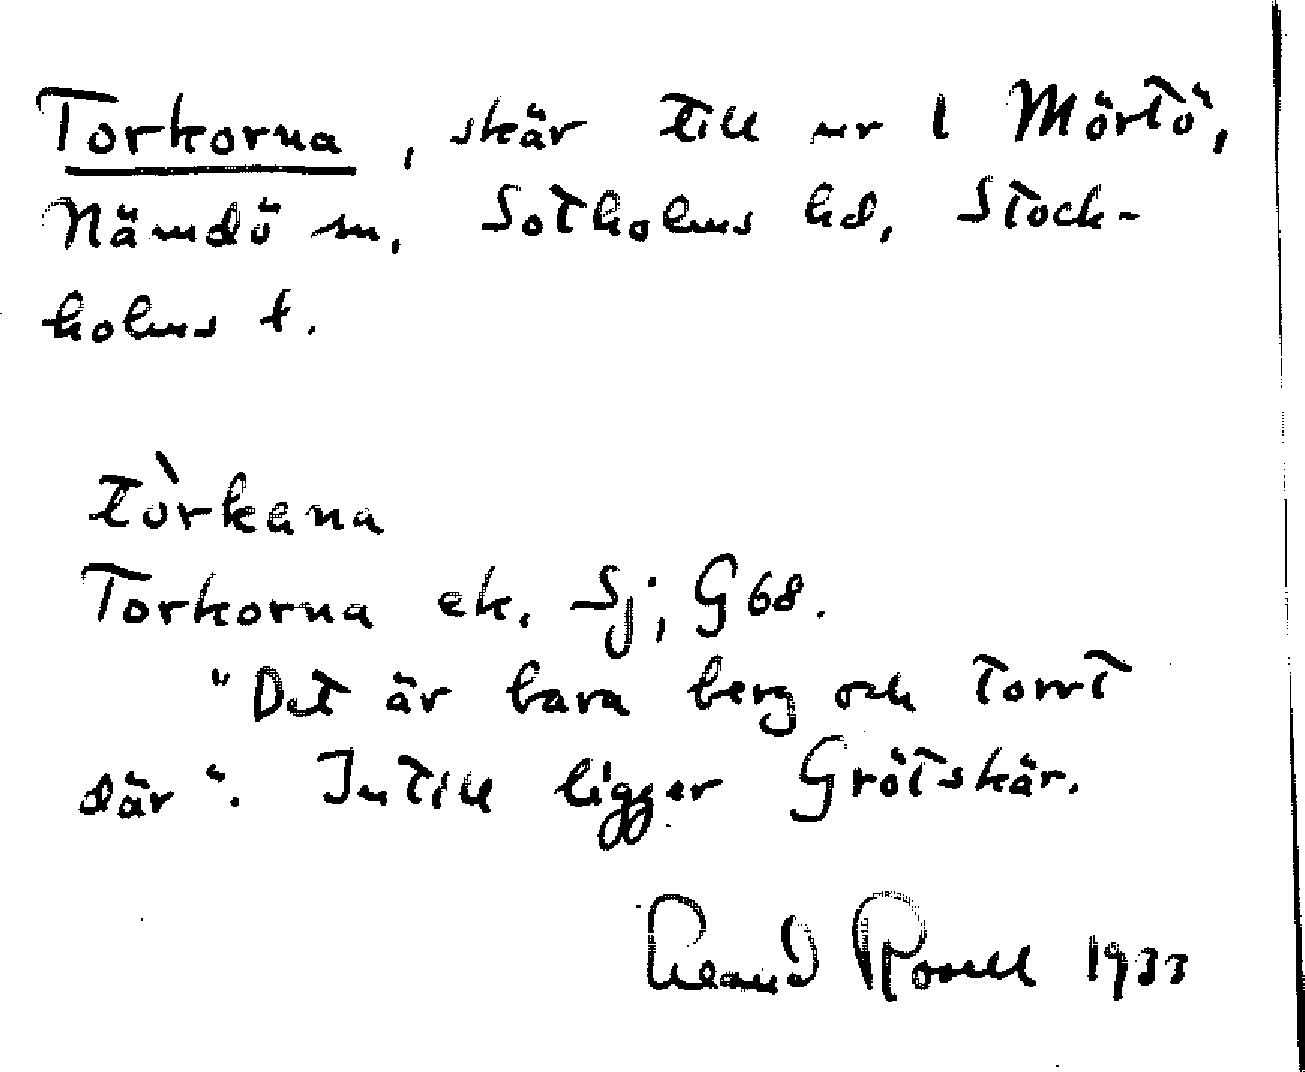 Torkorna, skär till nr 1 Mörtö,
Nämdö sn, Sotholms hd, Stock-
holms t.
tòrkana
Torkorna ek. Sj; G 68.
"Det är bara berg och torrt
där". Intill ligger Grötskär.
1933